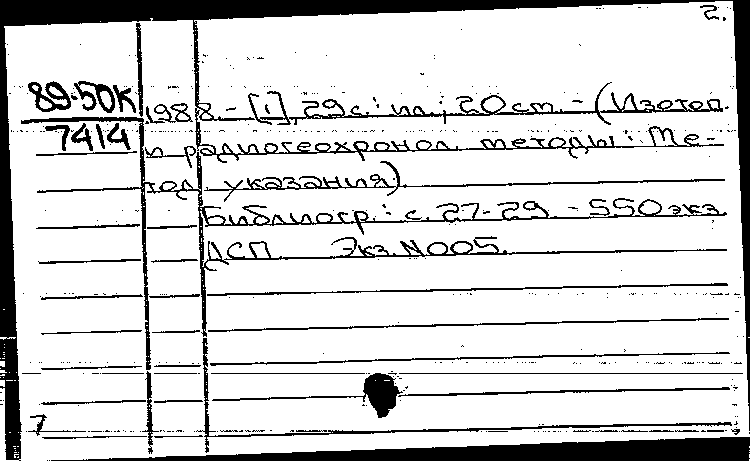 2.
89-50К
7414
1988. - [1], 29с.: ил.; 20 см. - (Изотоп.
и радиогеохронол. методы: Ме-
тод. указания).
Библиогр.: с. 27-29. - 550 экз.
ДСП. Экз. N005.
7